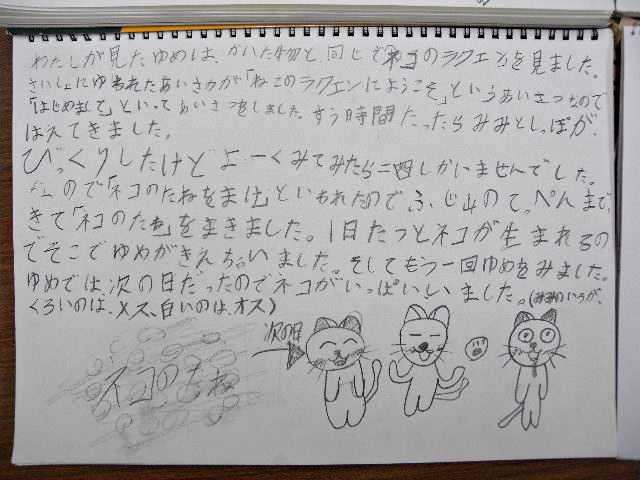 わたしが見たゆめは、かいた物と、同じでネコのラクエンを見ました。
さいしょにゆわれたあいさつが「ねこのラクエンにようこそ」というあいさつなので
「はじめまして」といってあいさつをしました。すう時間たったらみみとしっぽが、
はえてきました。
びっくりしたけどよーくみてみたら二四しかいませんでした。
なので「ネコのたねをまけ」といわれたので、ふじ山のてっぺんまで、
きて「ネコのたね」をまきました。1日たつとネコが生まれるの
でそこでゆめがきえちゃいました。そしてもう一回ゆめをみました。
ゆめでは次の日だったのでネコがいっぱいいました。(みみのいろが、
くろいのは、メス、白いのは、オス)
次の日
ネコのたね